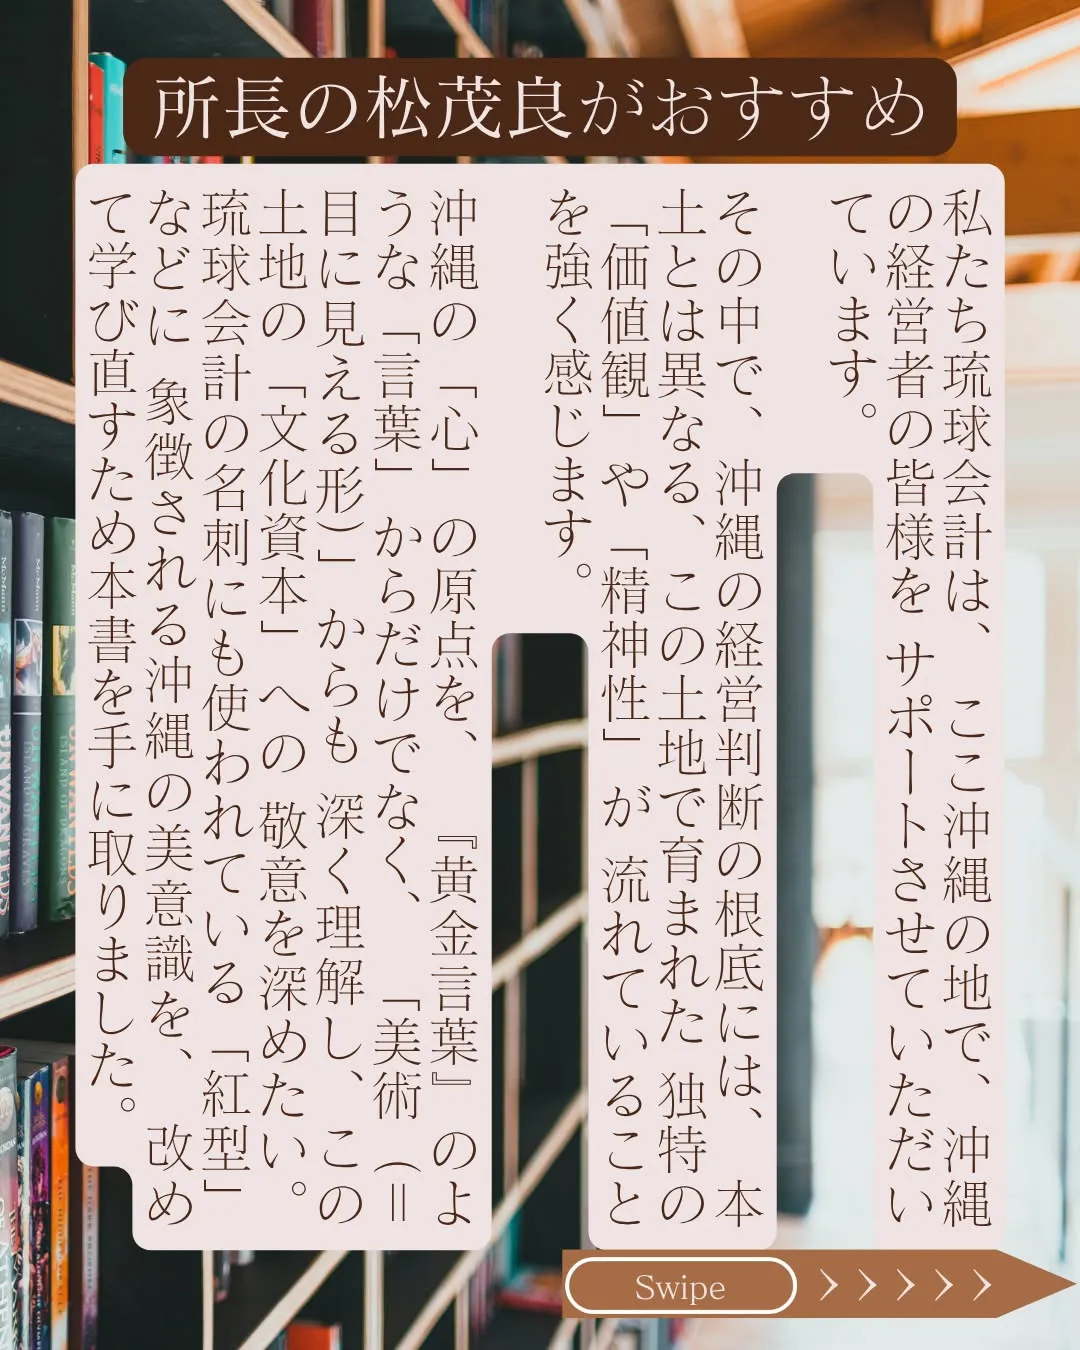 所長の松茂良がおすすめ
私たち琉球会計は、ここ沖縄の地で、沖縄
の経営者の皆様を サポートさせていただい
ています。
その中で、沖縄の経営判断の根底には、本
土とは異なる、この土地で育まれた 独特の
「価値観」や「精神性」が 流れていること
を強く感じます。
沖縄の「心」の原点を、『黄金言葉』のよ
うな「言葉」からだけでなく、「美術（＝
目に見える形）」からも 深く理解し、この
土地の「文化資本」への 敬意を深めたい。
琉球会計の名刺にも使われている「紅型」
などに 象徴される沖縄の美意識を、改め
て学び直すため本書を手に取りました。
Swipe